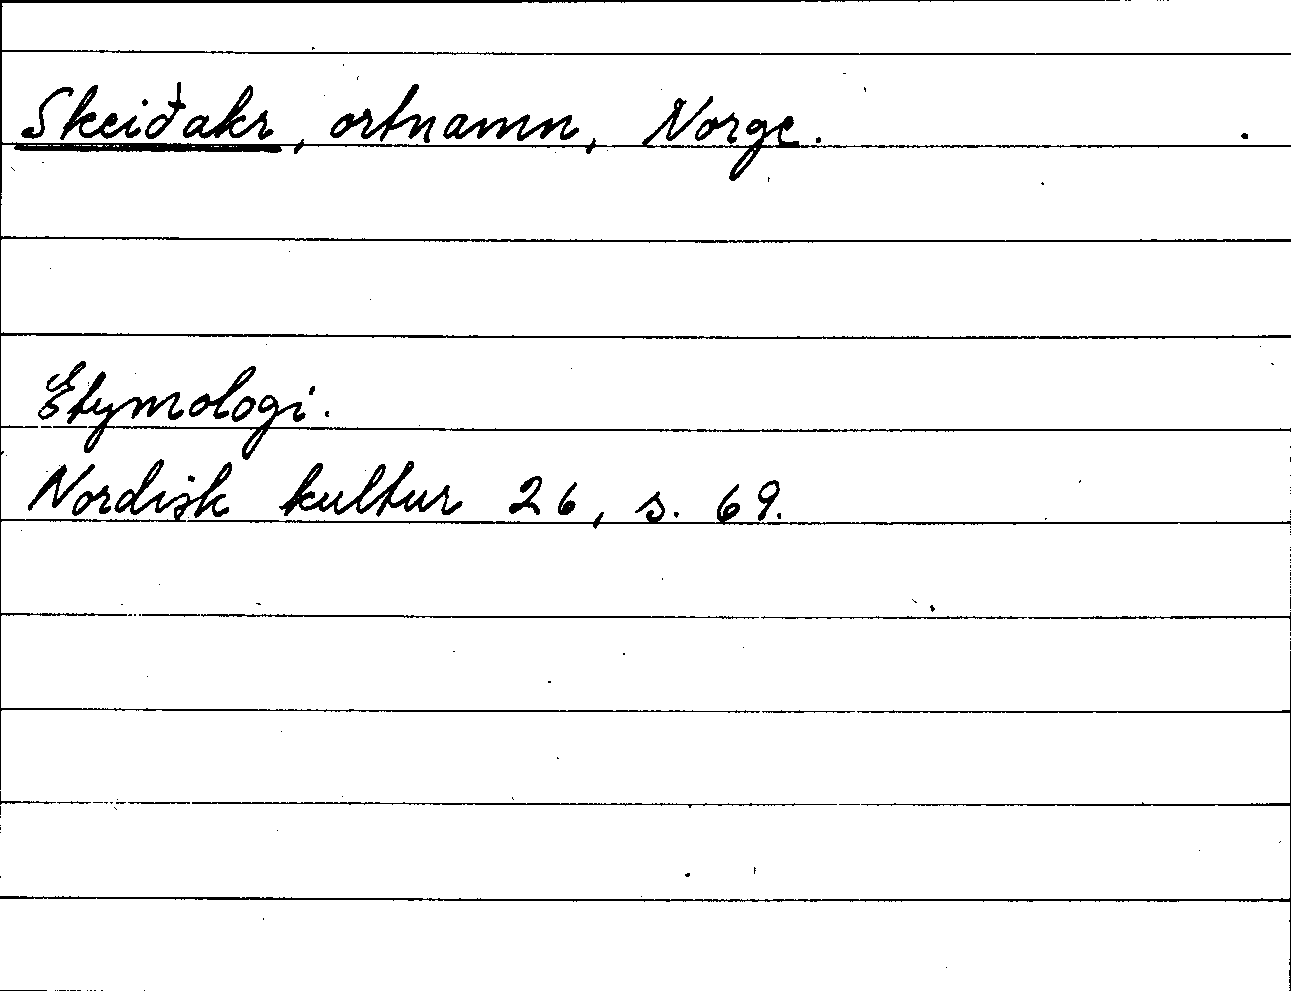 Skeiđakr, ortnamn, Norge.
Etymologi.
Nordisk kultur 26, s. 69.